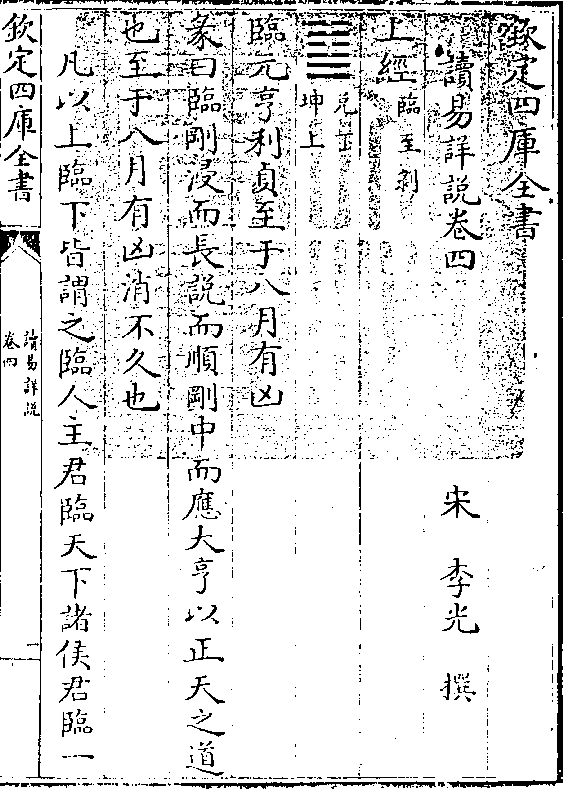 欽定四庫全書
讀易詳説卷四
宋 李光 撰
上經 臨至剥
䷒ 兌下
坤上
臨元亨利貞至于八月有凶
彖曰臨剛浸而長説而順剛中而應大亨以正天之道
也至于八月有凶消不久也
凡以上臨下皆謂之臨人主君臨天下諸侯君臨一
欽定四庫全書
讀易詳説
卷四
一